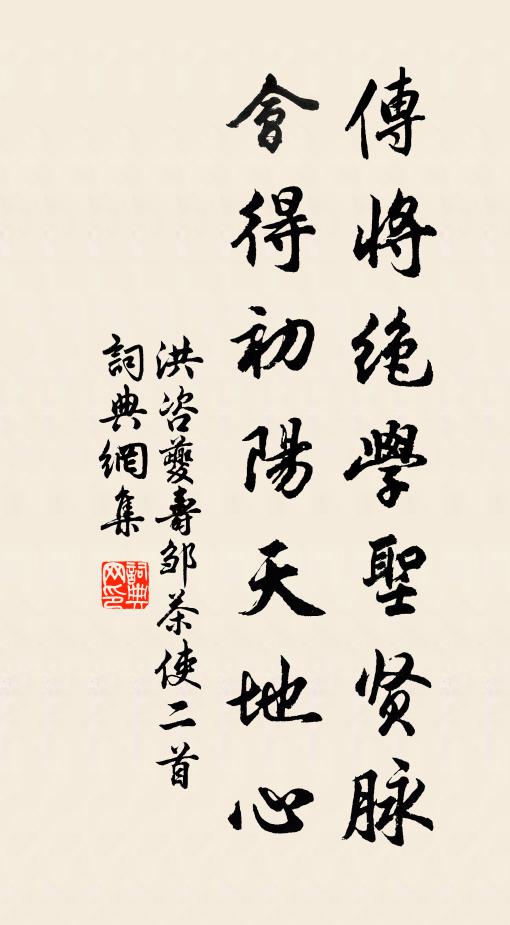 傳將絶學聖贤脉
會得初陽天地心
洪咨夔壽邹茶使二首
詞典網集
詞典网印